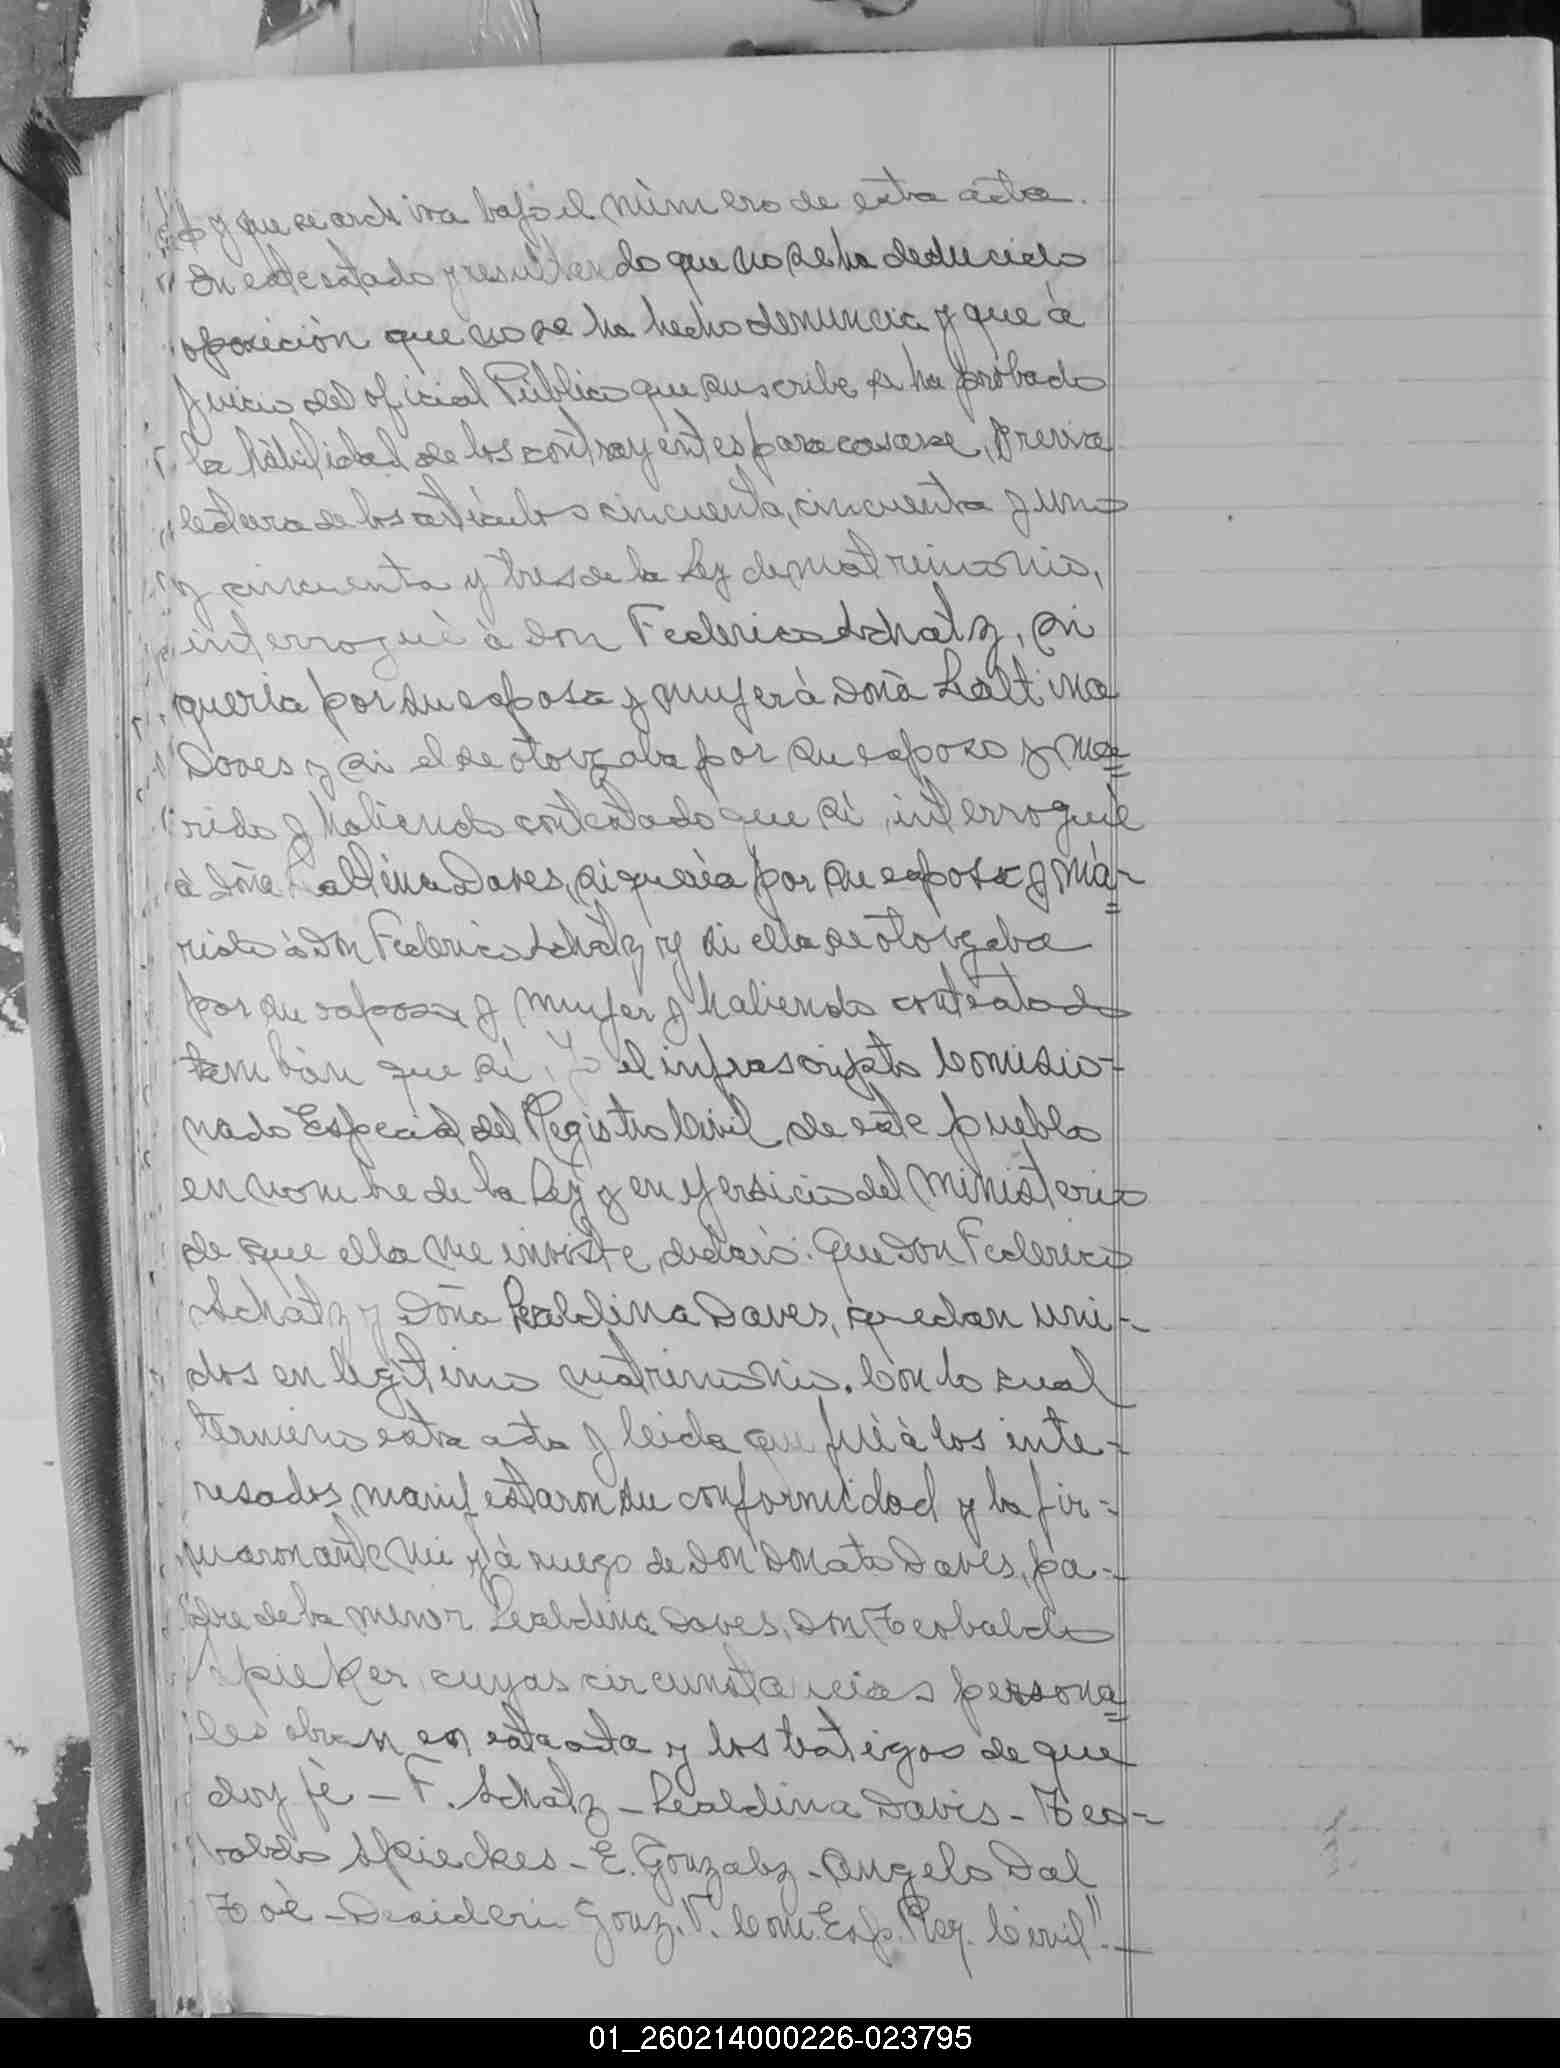 y que se archiva bajo el número de esta acta.
En este estado y resultando que no se ha deducido
oposición que no se ha hecho denuncia y que à
juicio del oficial Público que suscribe se ha probado
la hàbilidad de los contrayentes para casarse, previa
lectura de los artículos cincuenta, cincuenta y uno
y cincuenta y tres de la Ley de matrimonio,
interroguè à Don Federico Schatz, si
queria por su esposa y mujer à Doña
Daves y si el se otorgaba por su esposo y ma=
rido y habiendo contestado que si, interroguè
à Doña Daves, si queria por su esposo y ma-
rido à Don Federico Schatz y si ella se otorgaba
por su esposa y mujer y habiendo contestado
tambien que si, Yo el infrascripto Comisio-
nado Especial del Registro Civil de este pueblo
en nombre de la Ley y en ejersicio del ministerio
de que ella me inviste, declaro: Que Don Federico
Schatz y Doña Lealdina Daves, quedan uni-
dos en legitimo matrimonio. Con lo cual
termino esta acta y leida que fuè à los inte-
resados, manifestaron su conformidad y la fir-
maron ante mi y à ruego de Don Donato Daves, pa-
dre de la menor Lealdina Daves, Don Teobaldo
Spieker, cuyas circunstancias persona=
les obran en esta acta y los testigos de que
doy fè - F. Schatz - Lealdina Davis - Teo-
baldo Spieckes - E. Gonzalz - Angelo Dal
Toè - Desideri Gonz. V. Com. Esp. Reg. Civil". -
01_260214000226-023795